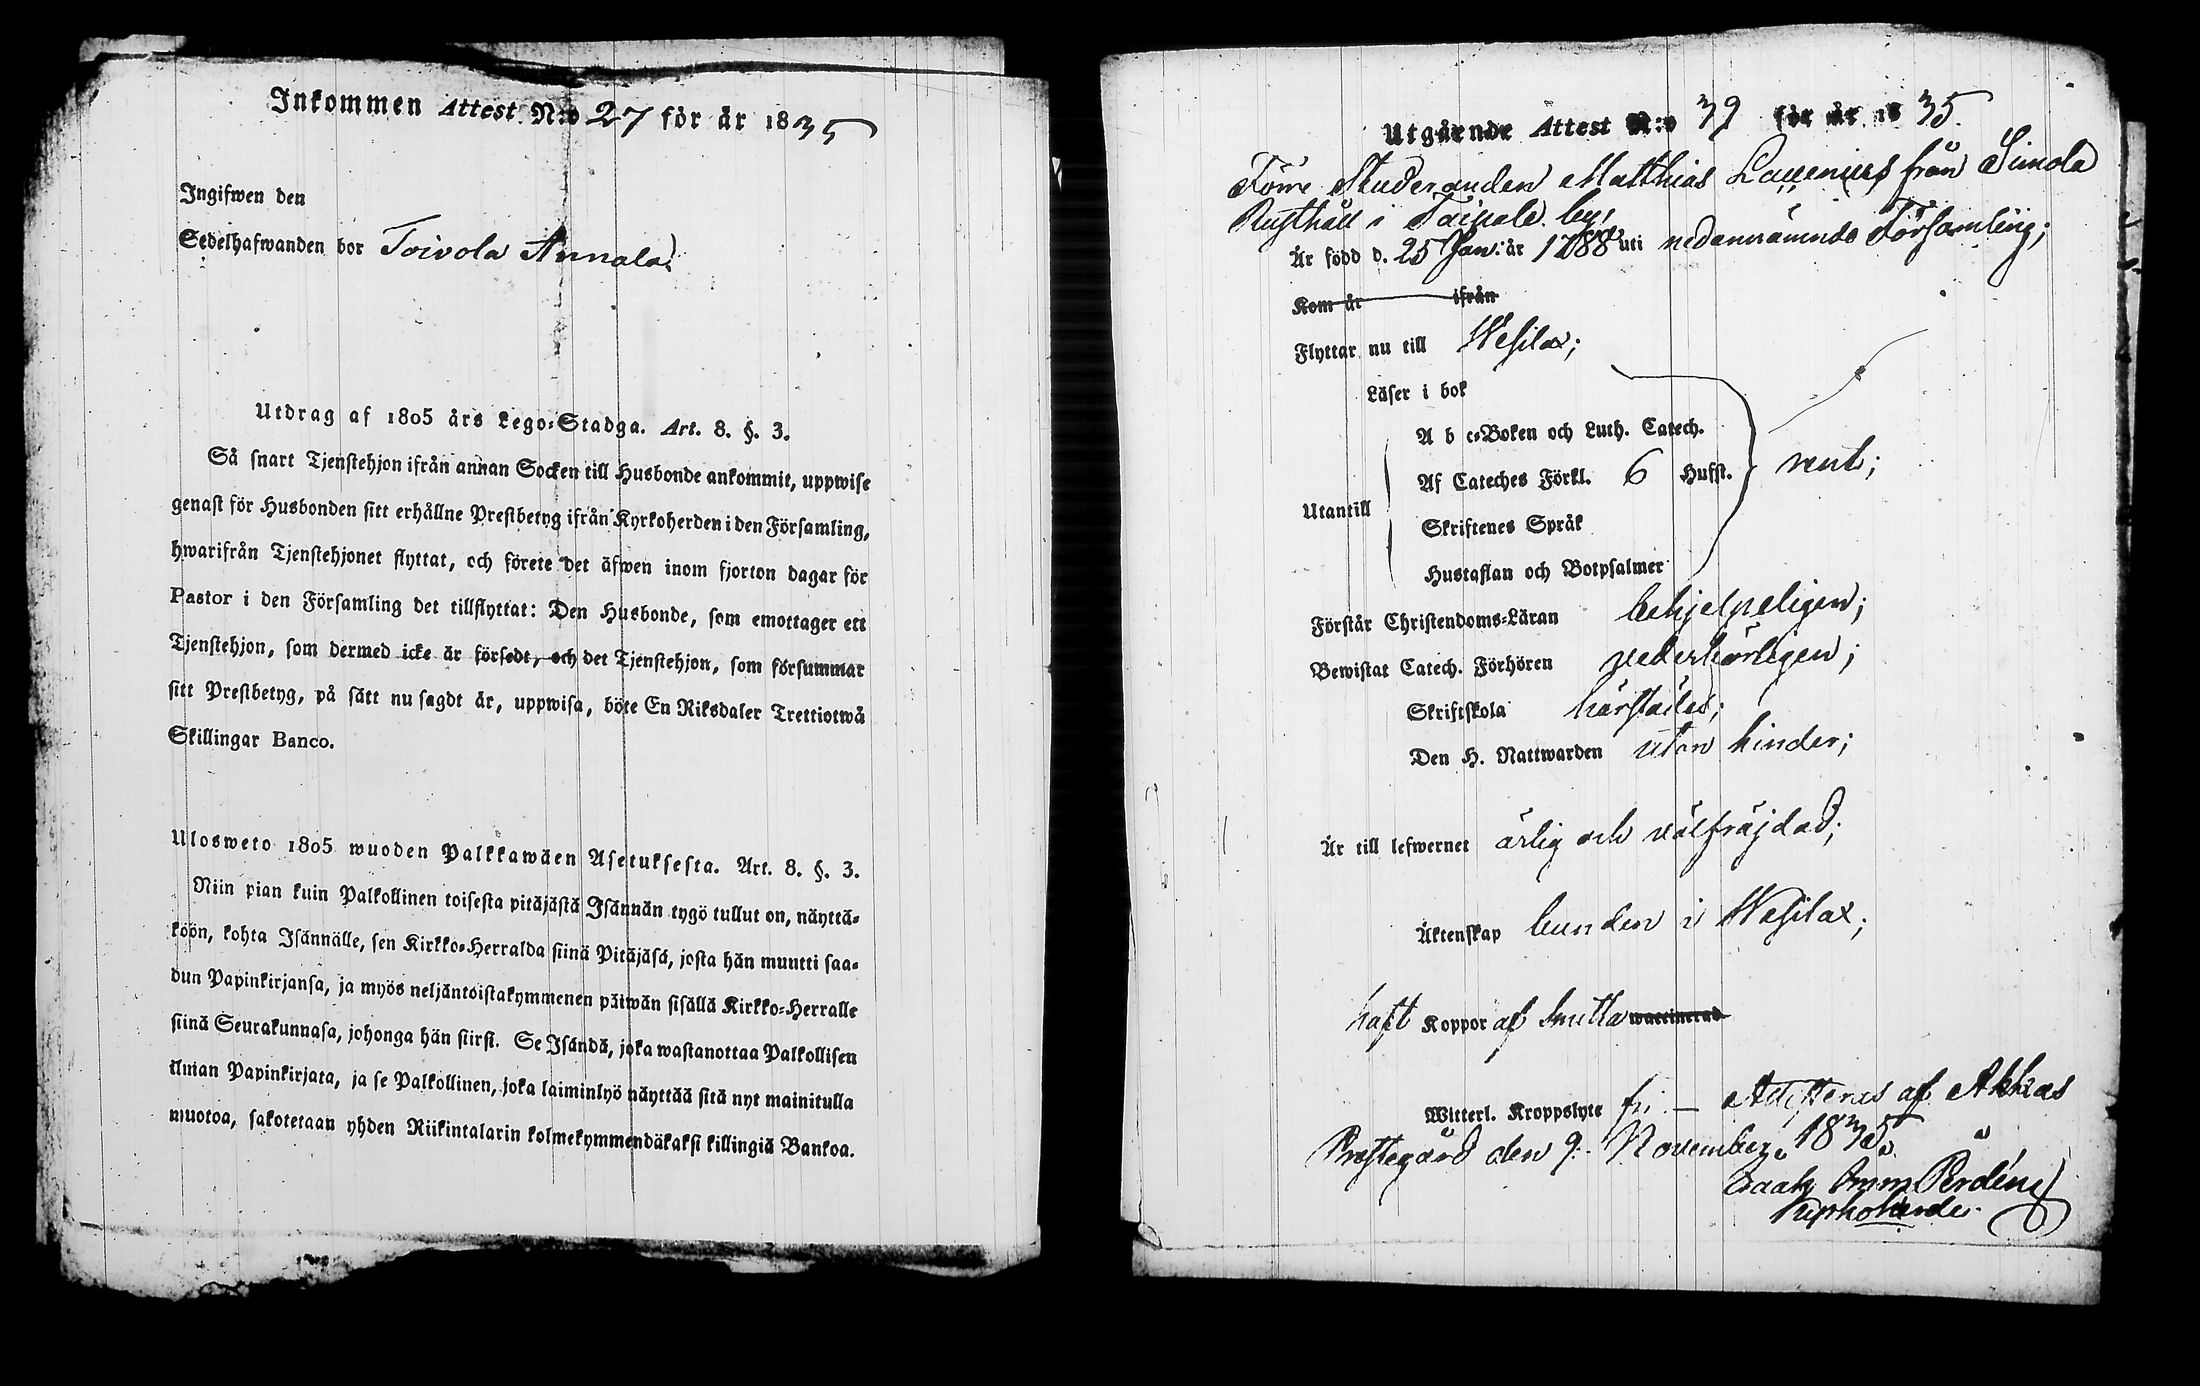 Inkommen Attest N:o 27 för år 1835
Ingifwen den
Sedelhafwanden bor Toivola Annala.
Utdrag af 1805 års Lego-Stadga. Art. 8. §. 3.
Så snart Tjenstehjon ifrån annan Socken till Husbonde ankommit, uppwise
genast för Husbonden sitt erhållne Prestbetyg ifrån Kyrkoherden i den Församling,
hwarifrån Tjenstehjonet flyttat, och förete det äfwen inom fjorton dagar för
Pastor i den Församling det tillflyttat: Den Husbonde, som emottager ett
Tjenstehjon, som dermed icke är försedt, och det Tjenstehjon, som försummar
sitt Prestbetyg, på sätt nu sagdt är, uppwisa, böte En Riksdaler Trettiotwå
Skillingar Banco.
Ulosweto 1805 wuoden Palkkawäen Asetuksesta. Art. 8. §. 3.
Niin pian kuin Palkollinen toisesta pitäjästä Isännän tygö tullut on, näyttä-
köön, kohta Isännälle, sen Kirkko-Herralda siinä Pitäjäsä, josta hän muutti saa-
dun Papinkirjansa, ja myös neljäntoistakymmenen päiwän sisällä Kirkko-Herralle
siinä Seurakunnasa, johonga hän siirst. Se Isändä, joka wastanottaa Palkollisen
ilman Papinkirjata, ja se Palkollinen, joka laiminlyö näyttää sitä nyt mainitulla
muotoa, sakotetaan yhden Riikintalarin kolmekymmendäkaksi killingiä Bankoa.
Utgående Attest N:o 39 för år 1835.
Förre Studeranden Matthias från Simola
Rusthåll i Taipale by,
Är född d. 25 Jan: år 1788 uti nedannämnde Församling;
Kom år ifrån
Flyttar nu till Wesilax;
Läser i bok
A b c-Boken och Luth. Catech.
Utantill Af Cateches Förkl. 6 Hufst. rent;
Skriftenes Språk
Hustaflan och Botpsalmer
Förstår Christendoms-Läran behjelpeligen;
Bewistat Catech. Förhören vederbörligen;
Skriftskola härstädes;
Den H. Nattwarden utan hinder;
Är till lefwernet ärlig och välfräjdad;
Äktenskap bunden i Wesilax;
haft Koppor af smitta waccinerad
Witterl. Kroppslyte fri. — Attesteras af Akkas
Prestegård den 9. November 1835.
Isaak Imm